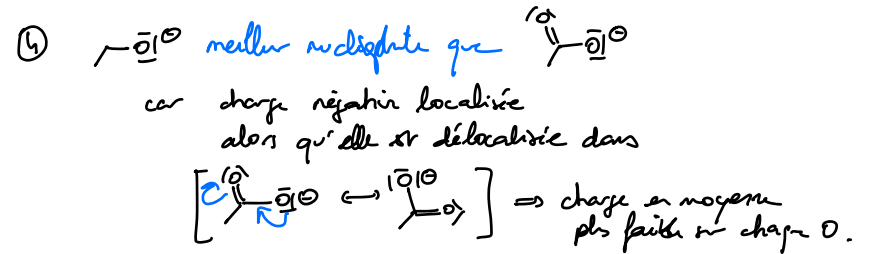 ④ O ⊖ meilleur nucléophile que O O ⊖
car charge négative localisée
alors qu'elle est délocalisée dans
[ O O ⊖ ↔ O ⊖ O ] ⇒ charge en moyenne
plus faible sur chaque O.